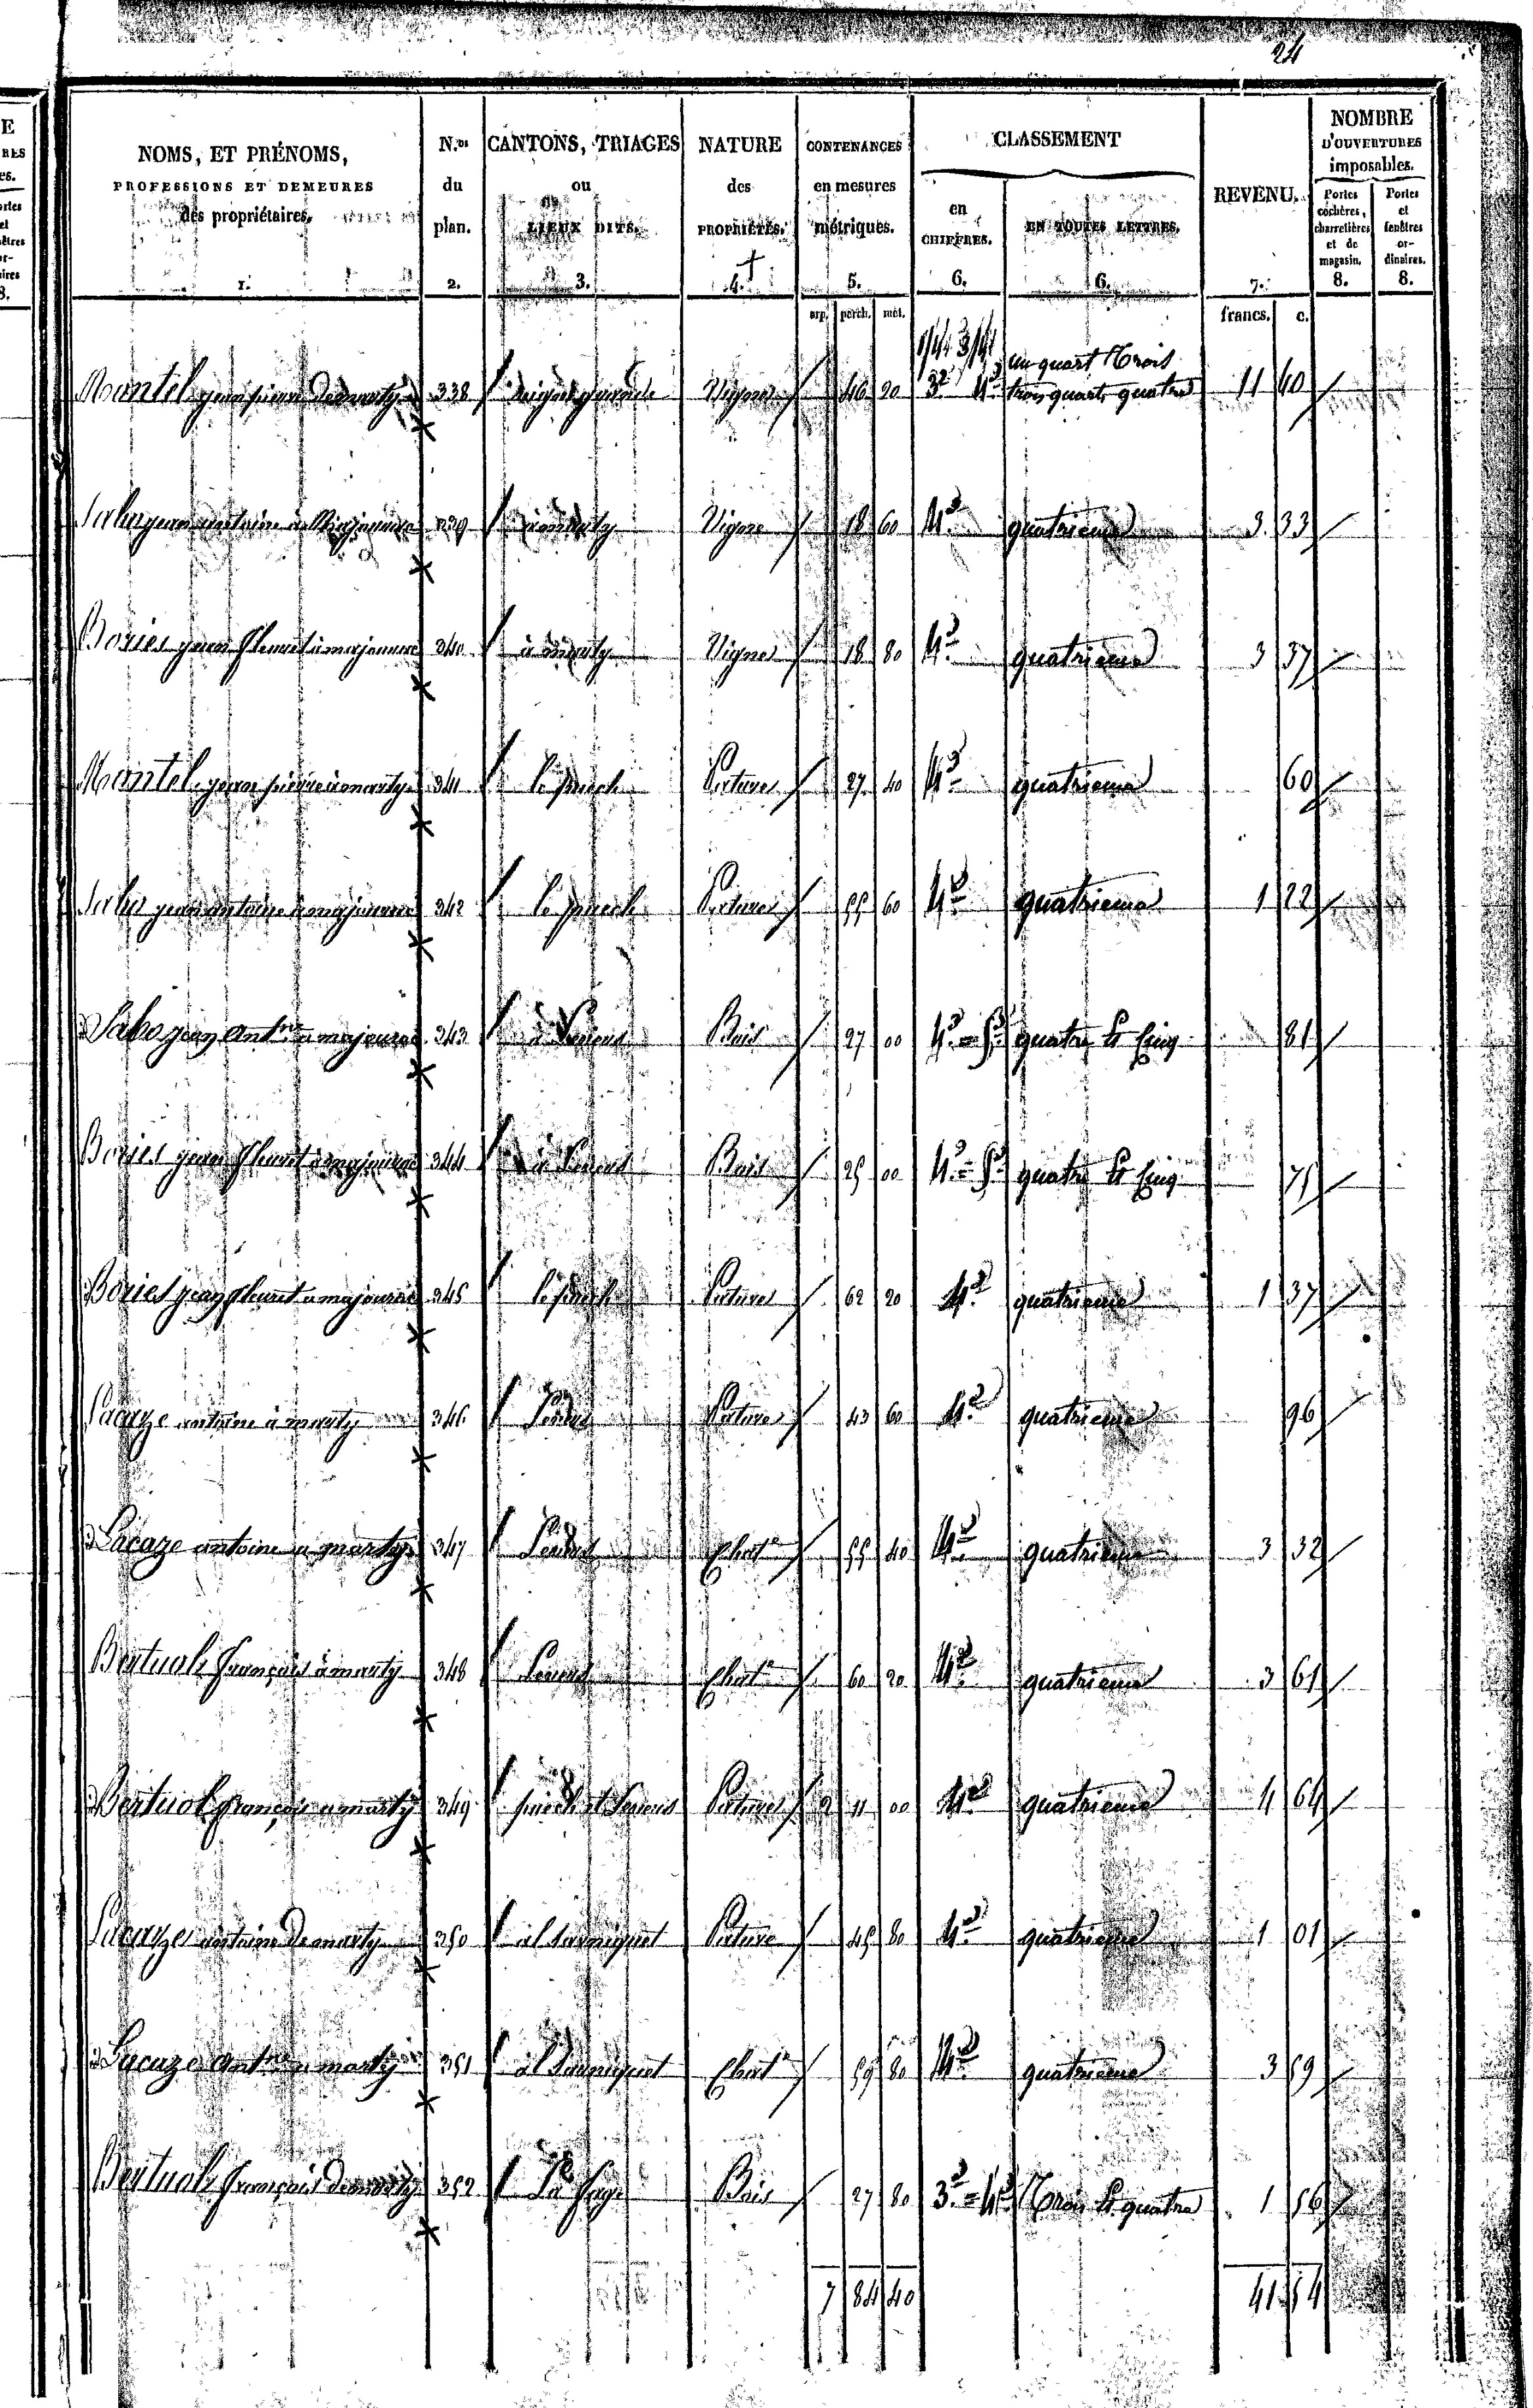 24
E
RES
es.
NOMS, ET PRÉNOMS,
PROFESSIONS ET DEMEURES
des propriétaires.
1.
N.os
du
plan.
2.
CANTONS, TRIAGES
ou
LIEUX DITS.
3.
NATURE
des
PROPRIÉTÉS.
4.
CONTENANCES
en mesures
métriques.
5.
CLASSEMENT
en
CHIFFRES.
6.
EN TOUTES LETTRES.
6.
REVENU.
7.
NOMBRE
D'OUVERTURES
imposables.
Portes
cochères,
charretières
et de
magasin.
8.
Portes
et
fenêtres
or-
dinaires.
8.
arp. perch. mèt. francs. c.
1/4 3/4 un quart Trois
Mantel jean pierre de marty 338 Vigne 46 20 3e 4e trois quarts quatre 11 40
jean antoine à Majourac 339 à marty Vigne 18 60 4e quatrieme 3 33
Bories jean fleuret à majourac 340 à marty Vigne 18 80 4e quatrieme 3 37
Mantel jean pierre à marty 341 le puech Pature 27 40 4e quatrieme 60
jean antoine à majourac 342 le puech Pature 55 60 4e quatrieme 1 22
jean Antne a majourac 343 Bois 27 00 4e = 5e quatre et cinq 81
Bories jean fleuret à majourac 344 Bois 25 00 4e = 5e quatre et cinq 75
Bories jean fleuret a majourac 345 le puech Pature 62 20 4e quatrieme 1 37
Lacaze antoine à marty 346 Pature 43 60 4e quatrieme 96
Lacaze antoine a marty 347 Chate 55 40 4e quatrieme 3 32
Bertuol françois à marty 348 Chate 60 20 4e quatrieme 3 61
Bertuol françois a marty 349 puech et Pature 2 11 00 4e quatrieme 4 64
Lacaze antoine de marty 350 Pature 45 80 4e quatrieme 1 01
Lacaze Antne a marty 351 Chate 59 80 4e quatrieme 3 59
Bertuol françois de marty 352 Bois 27 80 3e = 4e Trois et quatre 1 56
7 84 40 41 54